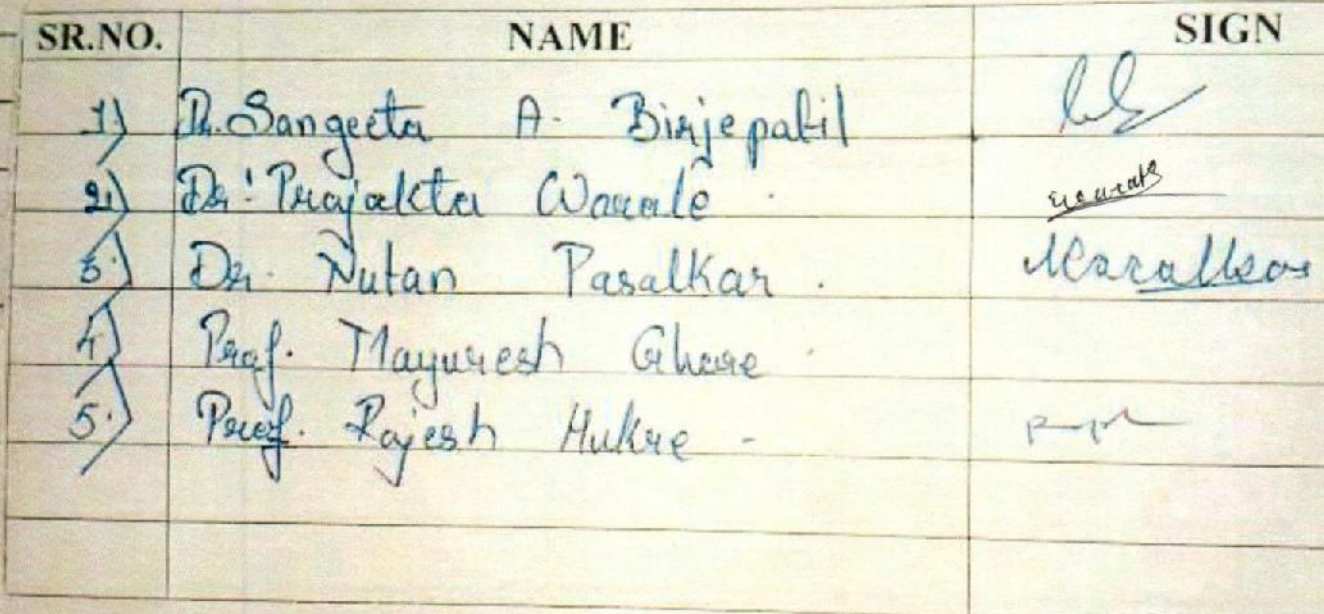 SR.NO. NAME SIGN
1) Dr. Sangeeta A. Birjepatil
2) Dr. Prajakta Warale
3) Dr. Nutan Pasalkar.
4) Prof. Mayuresh Ghare
5.) Prof. Rajesh Hukre -